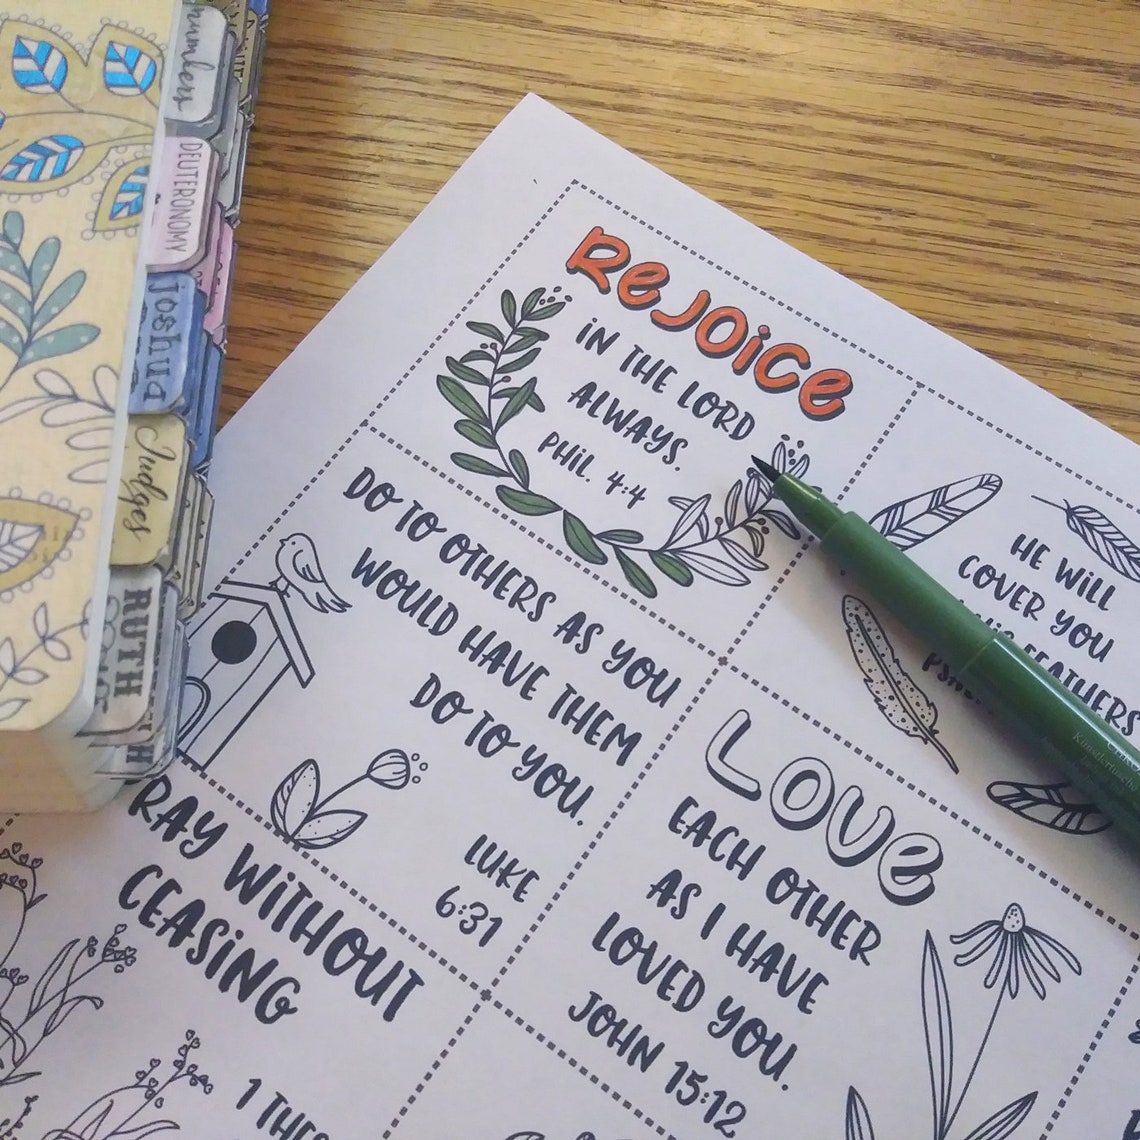 Numbers
DEUTERONOMY
Joshua
Judges
RUTH
REJOICE
IN THE LORD
ALWAYS.
PHIL. 4:4
DO TO OTHERS AS YOU
WOULD HAVE THEM
DO TO YOU.
LUKE
6:31
HE WILL
COVER YOU
FEATHERS
LOVE
EACH OTHER
AS I HAVE
LOVED YOU.
JOHN 15:12
RAY WITHOUT
CEASING
1 THES